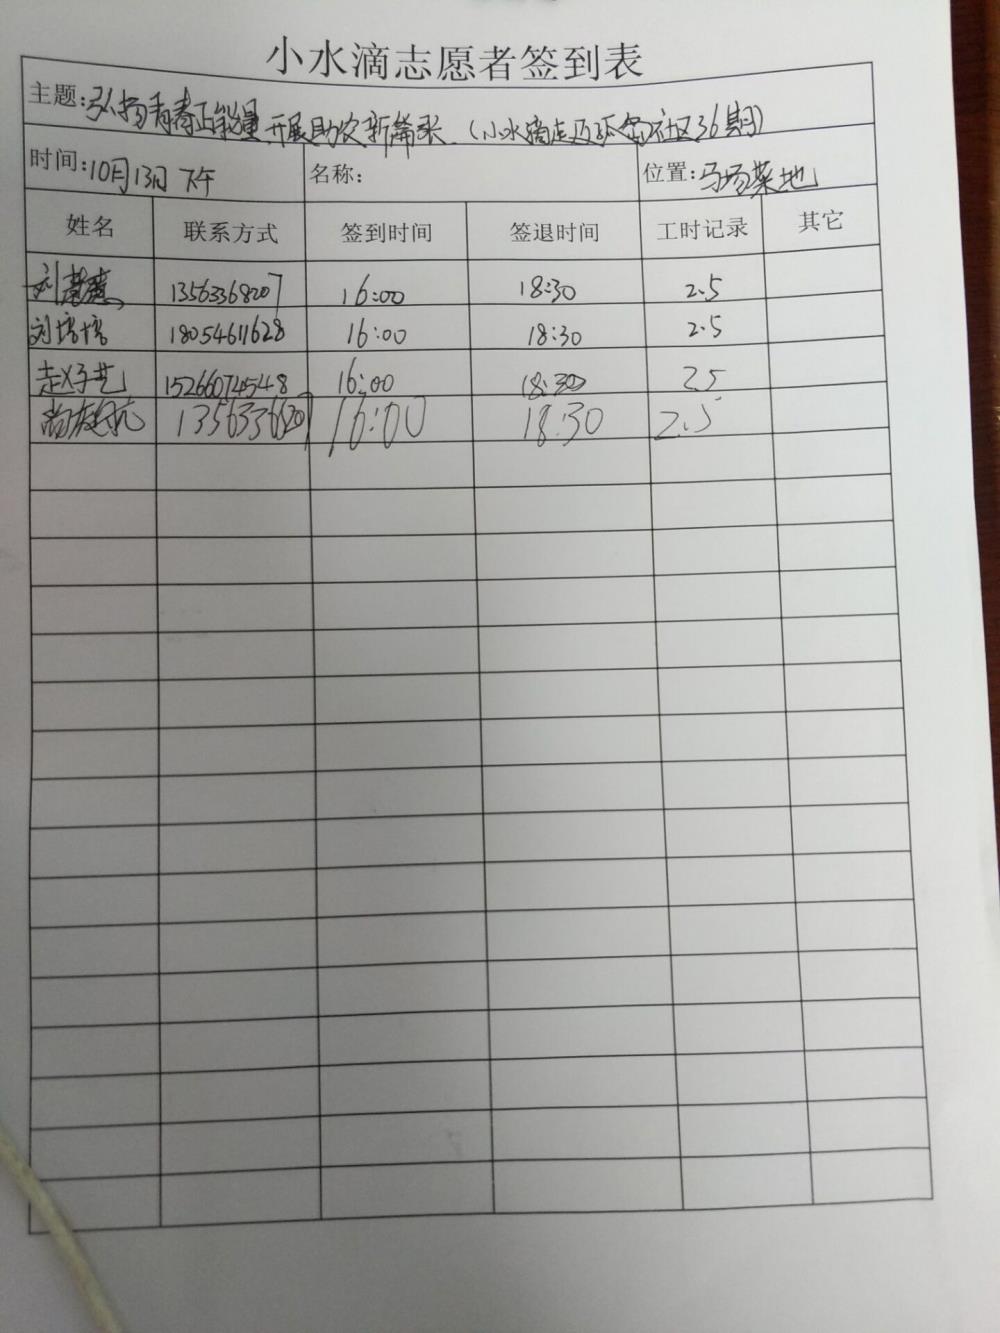 小水滴志愿者签到表
主题:弘扬青春正能量,开展助农新篇张.(小水滴走及社区36期)
时间:10月13日 下午 名称: 位置:马场菜地
姓名 联系方式 签到时间 签退时间 工时记录 其它
刘 13563368207 16:00 18:30 2.5
刘培培 18054611628 16:00 18:30 2.5
赵子艺 15266074548 16:00 18:30 2.5
尚庭航 16:00 18:30 2.5